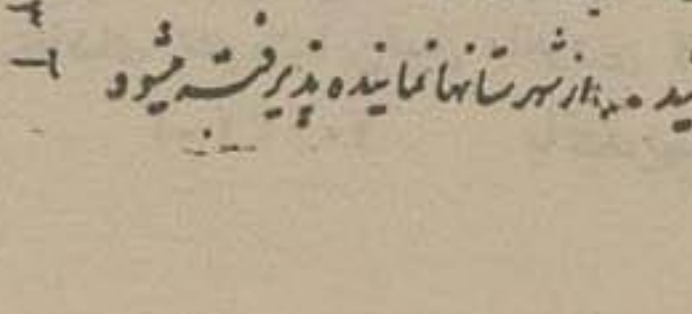 از شهرستانها نماینده پذیرفته میشود